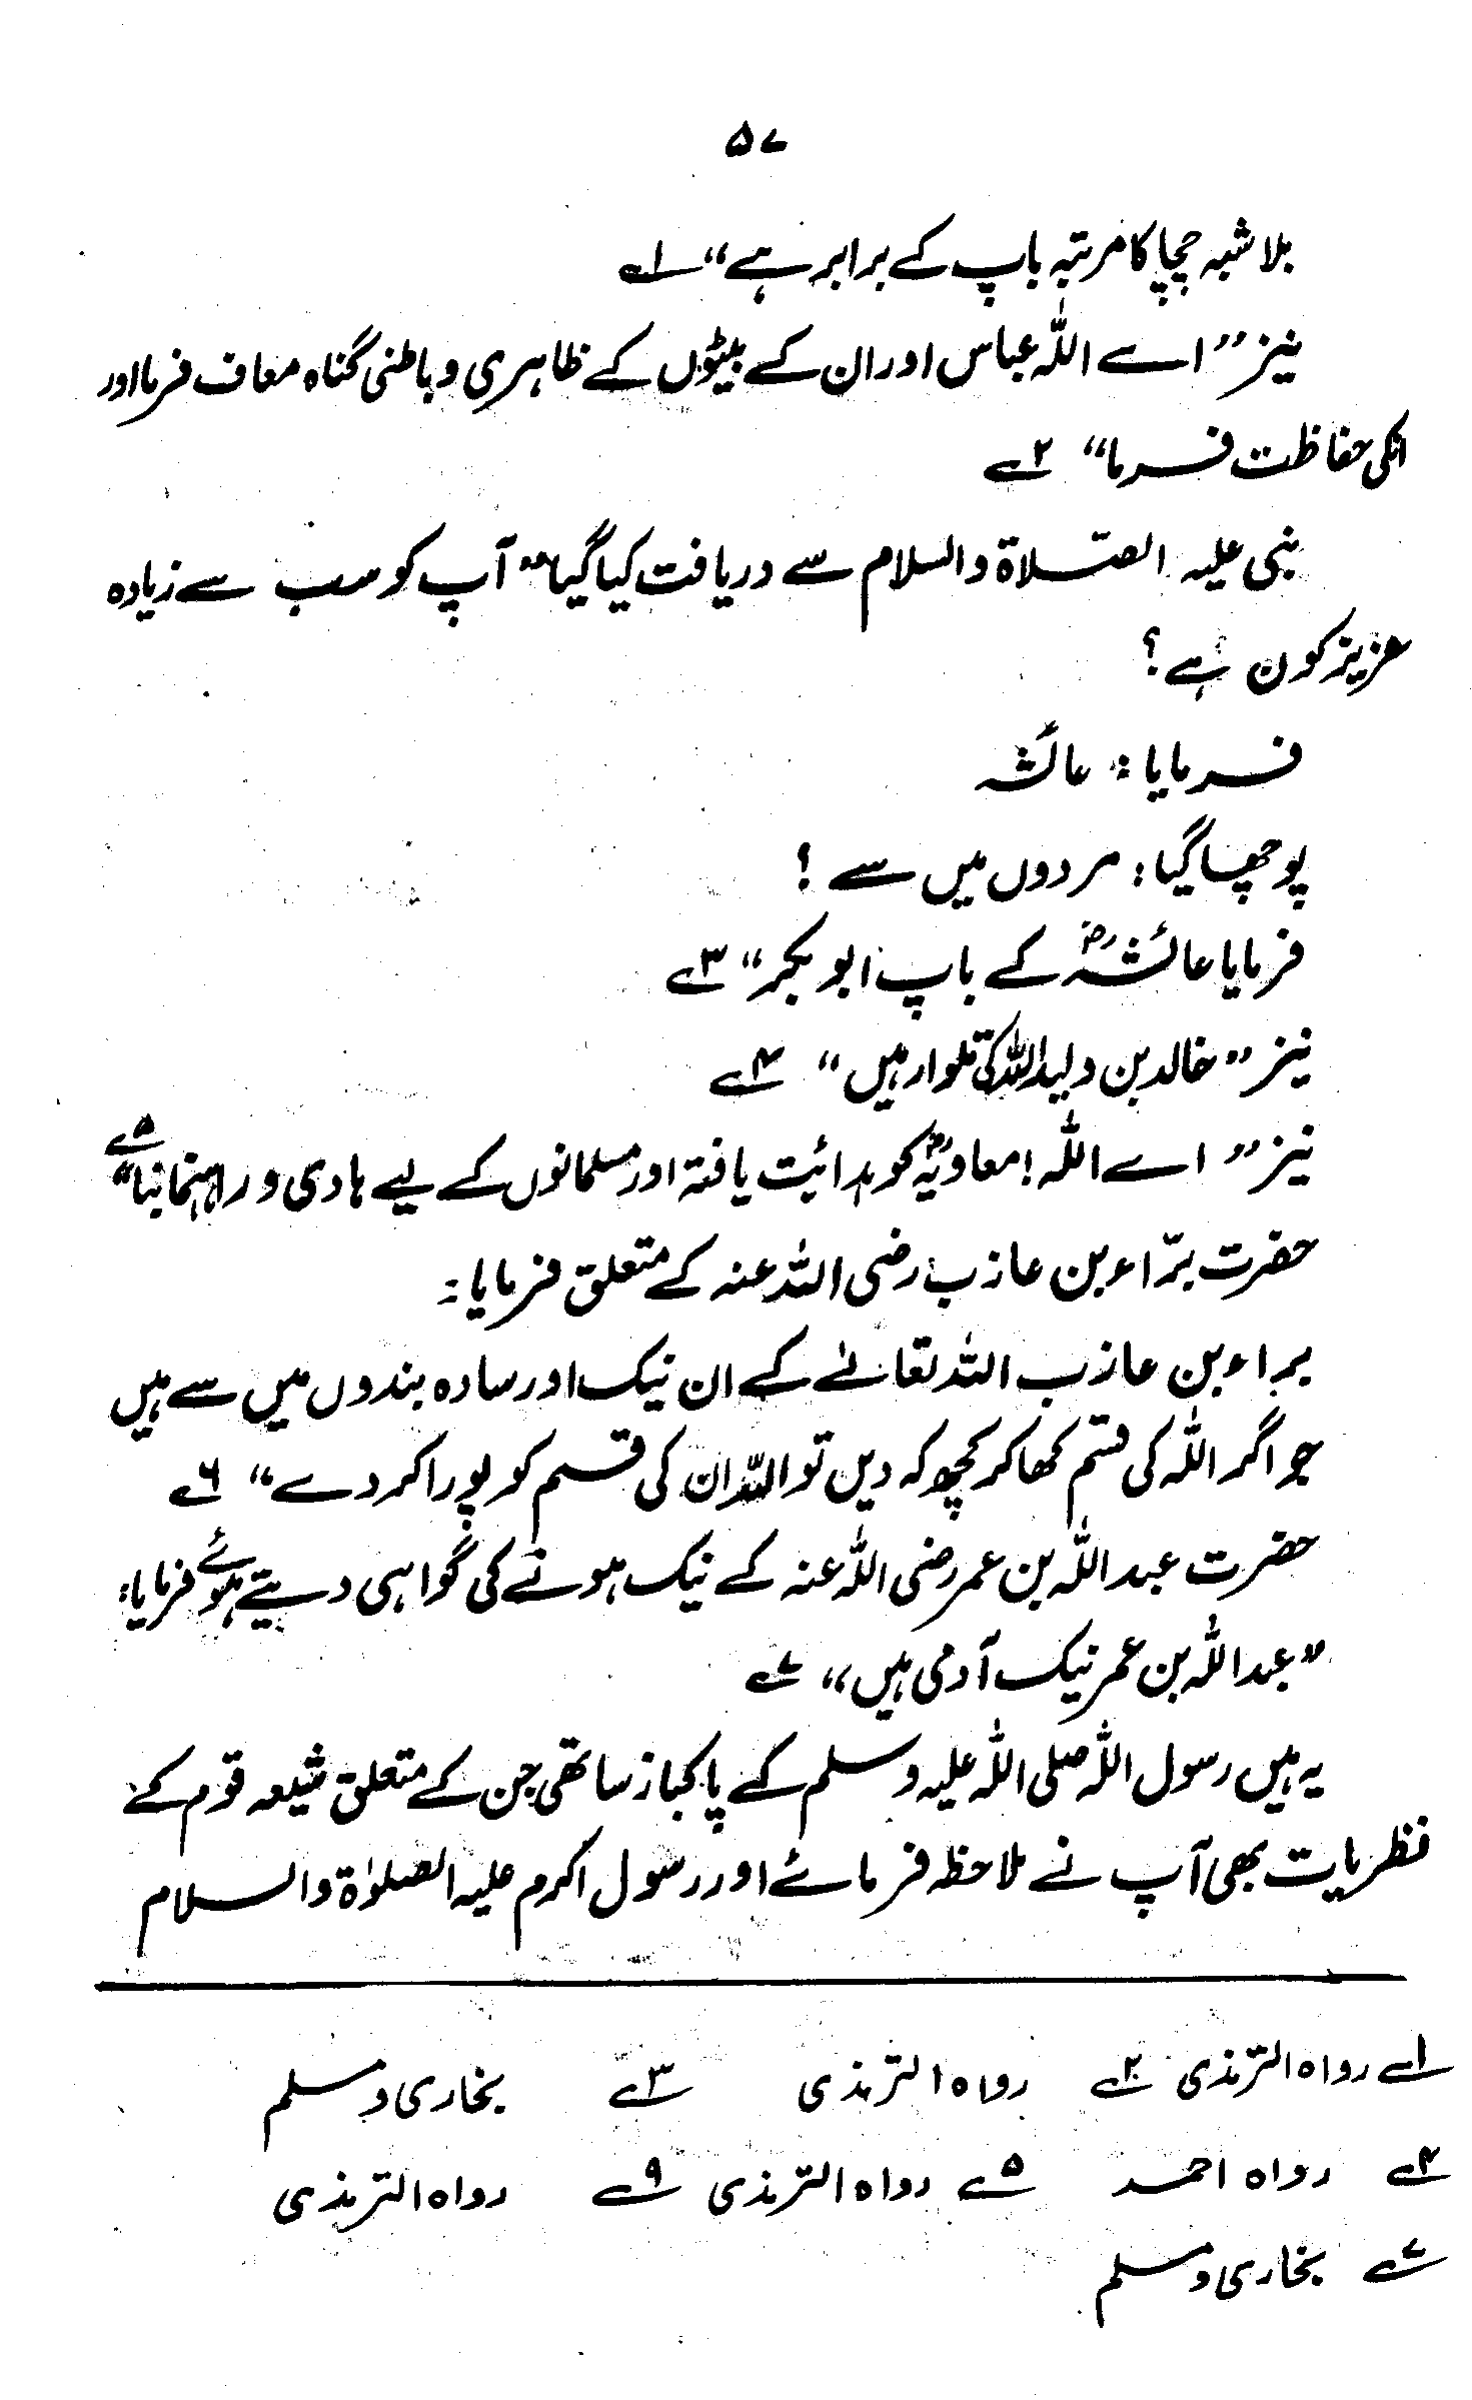 ۵۷
بلاشبہ چچا کا مرتبہ باپ کے برابر ہے“ ۱ے
نیز ”اے اللہ عباس اور ان کے بیٹوں کے ظاہری و باطنی گناہ معاف فرما اور
انکی حفاظت فرما“ ۲ے
نبی علیہ الصّلاۃ والسلام سے دریافت کیا گیا ”آپ کو سب سے زیادہ
عزیز کون ہے؟
فرمایا: عائشہ
پوچھا گیا: مردوں میں سے ؟
فرمایا عائشہؓ کے باپ ابوبکر“ ۳ے
نیز ”خالد بن ولید اللہ کی تلوار ہیں“ ۴ے
نیز ”اے اللہ! معاویہؓ کو ہدائیت یافتہ اور مسلمانوں کے لیے ہادی و راہنما بنا“ ۵ے
حضرت برّاء بن عازب رضی اللہ عنہ کے متعلق فرمایا:
براء بن عازب اللہ تعالےٰ کے ان نیک اور سادہ بندوں میں سے ہیں
جو اگر اللہ کی قسم کھا کر کچھ کہ دیں تو اللہ ان کی قسم کو پورا کر دے“ ۶ے
حضرت عبداللہ بن عمر رضی اللہ عنہ کے نیک ہونے کی گواہی دیتے ہوئے فرمایا:
”عبداللہ بن عمر نیک آدمی ہیں“ ۷ے
یہ ہیں رسول اللہ صلی اللہ علیہ وسلم کے پاکباز ساتھی جن کے متعلق شیعہ قوم کے
نظریات بھی آپ نے ملاحظہ فرمائے اور رسول اکرم علیہ الصلوٰۃ والسلام
۱ے رواہ الترمذی ۲ے رواہ الترمذی ۳ے بخاری و مسلم
۴ے رواہ احمد ۵ے رواہ الترمذی ۹ے رواہ الترمذی
۷ے بخاری و مسلم